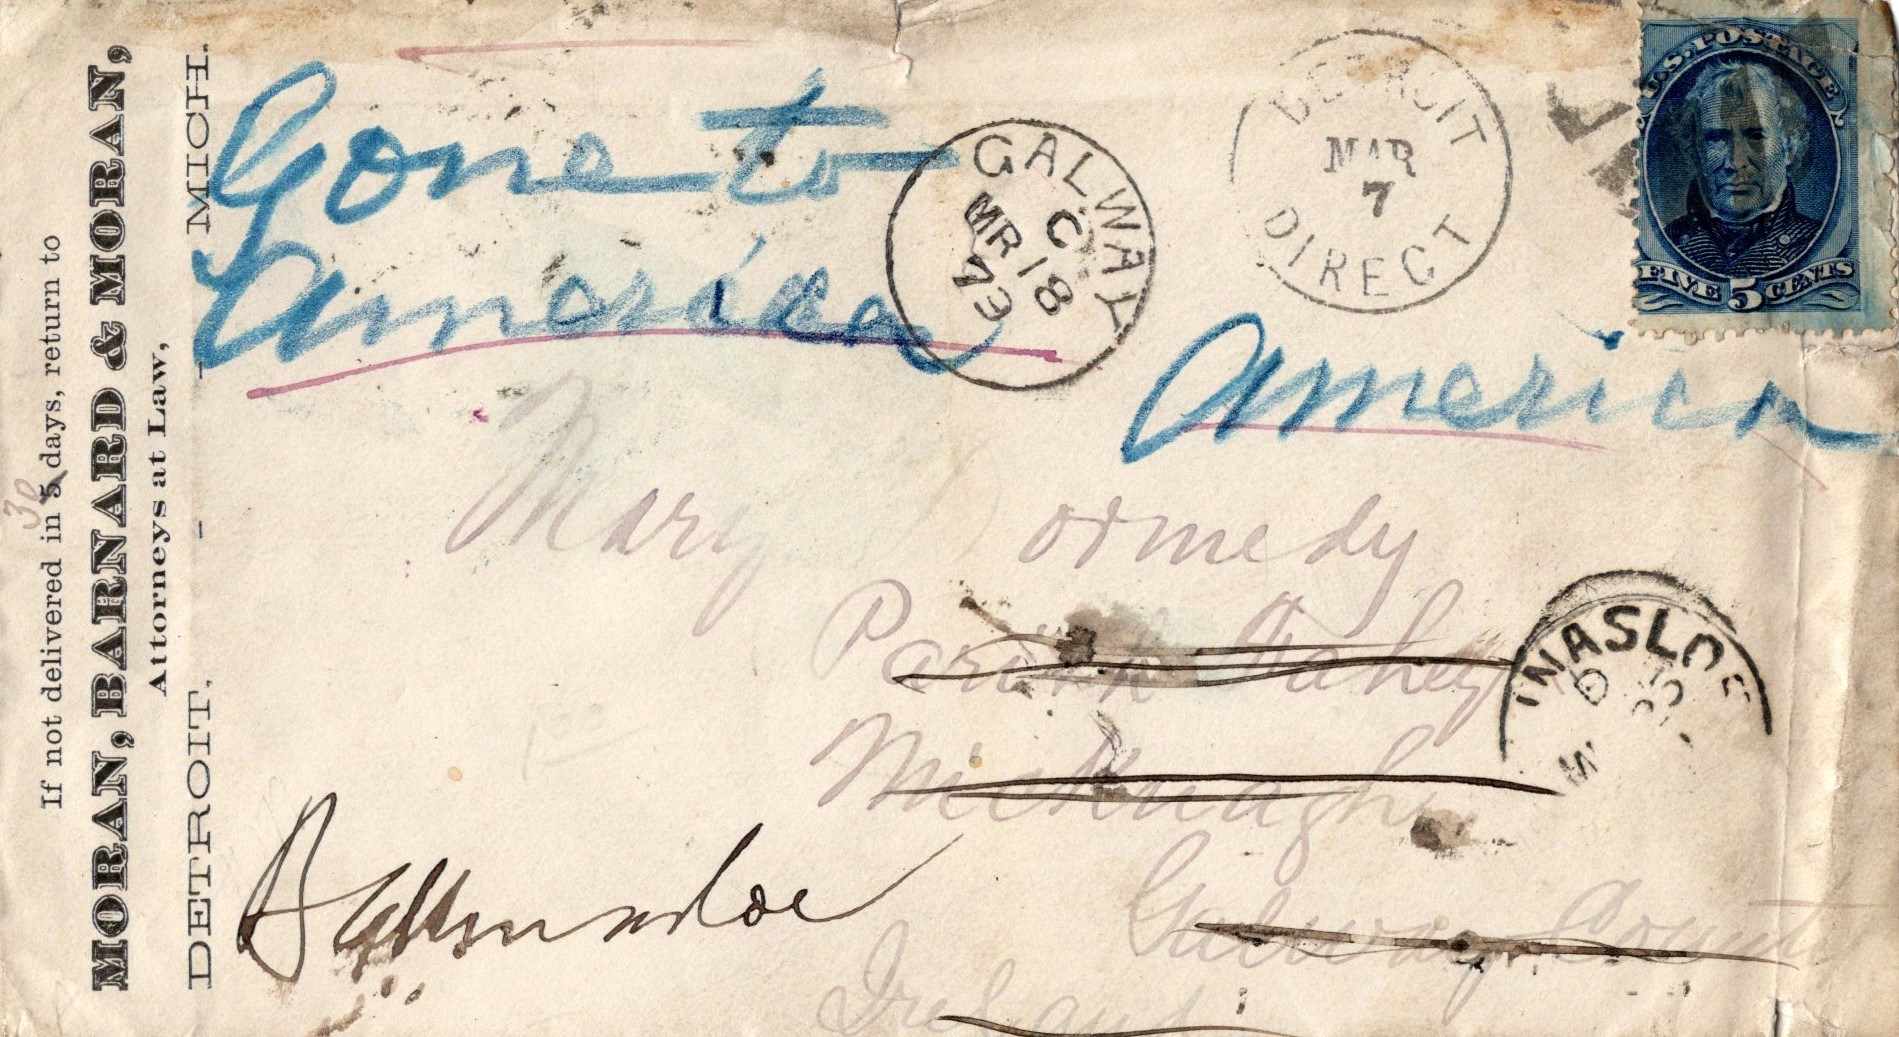 If not delivered in 5 30 days, return to
MORAN, BARNARD & MORAN,
Attorneys at Law,
DETROIT, - - MICH.
Gone to
America
GALWAY
C
MR 18
73
DETROIT
MAR
7
DIRECT
U.S. POSTAGE
FIVE 5 CENTS
America
Mary ormedy
Fahey
NASLOE
Galway County
Ireland
Ballinasloe